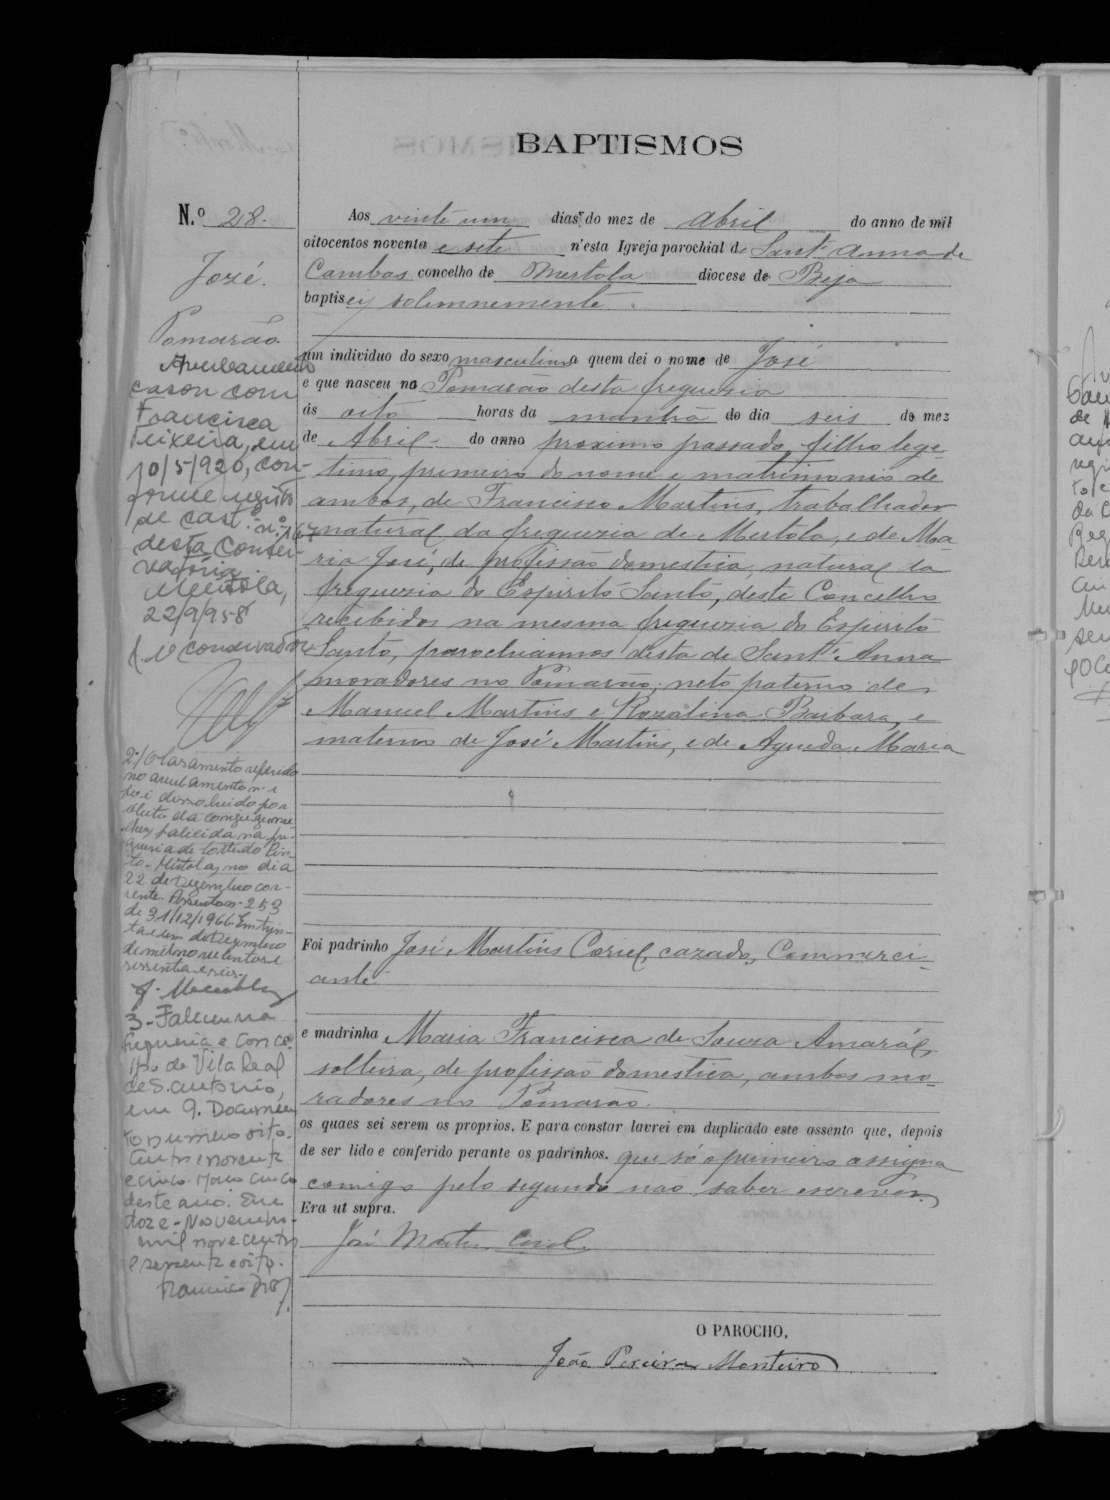 BAPTISMOS
N.º 28.
José.
Pomarão.
Averbamento
casou com
Francisca
Teixeira, em
10/5/1920, con-
forme registo
de cas.t.º n.º 167
desta Conser-
vatória
Mértola,
22/9/958
O conservador
2º/ O casamento referido
no averbamento n.º 1
foi dissolvido por
óbito da conjuge mu-
lher, falecida na fre-
guesia de Corte do Pin-
to - Mértola, no dia
22 de Dezembro cor-
rente. Assento n.º 253
de 31/12/1966. Em trin-
ta e um de Dezembro
de mil novecentos e
sessenta e seis.
3 - Faleceu na
freguesia e conce-
lho de Vila Real
de S. António,
em 9. Documen-
to numero oito.
centos noventa
e cinco. Maço cinco
deste ano. Em
doze - Novembro -
mil novecentos
e sessenta e oito.
Aos vinte um dias do mez de Abril do anno de mil
oitocentos noventa e sete n'esta Igreja parochial de Sant'Anna de
Cambas concelho de Mertola diocese de Beja
baptisei solemnemente
um individuo do sexo masculino a quem dei o nome de José
e que nasceu no Pomarão desta freguezia
ás oito horas da manhã do dia seis do mez
de Abril do anno proximo passado filho lege-
timo, primeiro do nome e matrimonio de
ambos, de Francisco Martins, trabalhador
natural da freguezia de Mertola, e de Ma-
ria José, de profissão domestica, natural da
freguezia do Espirito Santo, deste Concelho
recebidos na mesma freguezia do Espirito
Santo, parochianos desta de Sant'Anna
moradores no Pomarão; neto paterno de
Manuel Martins e Rozalina Barbara, e
materno de José Martins, e de Agueda Maria
Foi padrinho José Martins Coriel, cazado, Commerci-
ante
e madrinha Maria Francisca de Souza Amarál,
solteira, de profissão domestica, ambos mo-
radores no Pomarão.
os quaes sei serem os proprios. E para constar lavrei em duplicado este assento que, depois
de ser lido e conferido perante os padrinhos, que só o primeiro assigna
comigo pelo segundo não saber escrever.
Era ut supra.
José Martins Coriel
O PAROCHO,
João Pereira Monteiro